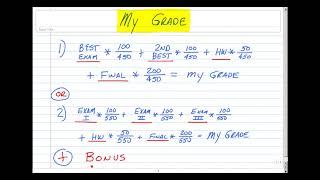 MY GRADE
1) BEST EXAM * 100/450 + 2ND BEST * 100/450 + HW * 50/450
+ FINAL * 200/450 = MY GRADE
OR
2) EXAM I * 100/550 + EXAM II * 100/550 + EXAM III * 100/550
+ HW * 50/550 + FINAL * 200/550 = MY GRADE
+ BONUS